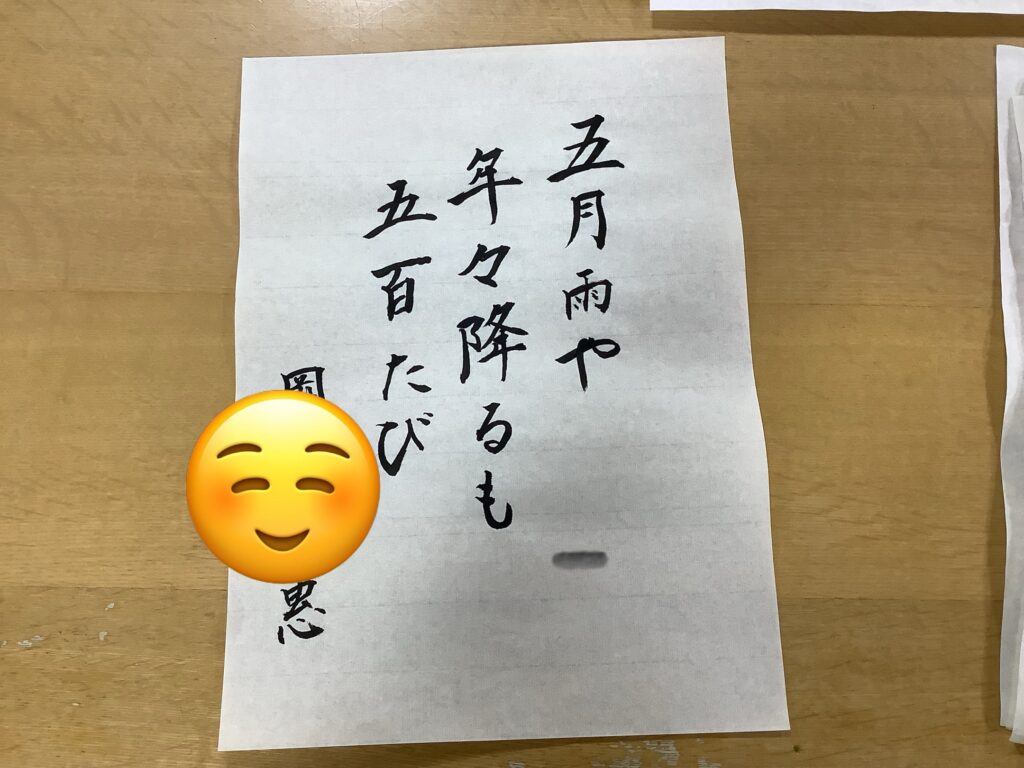 五月雨や
年々降るも
五百たび